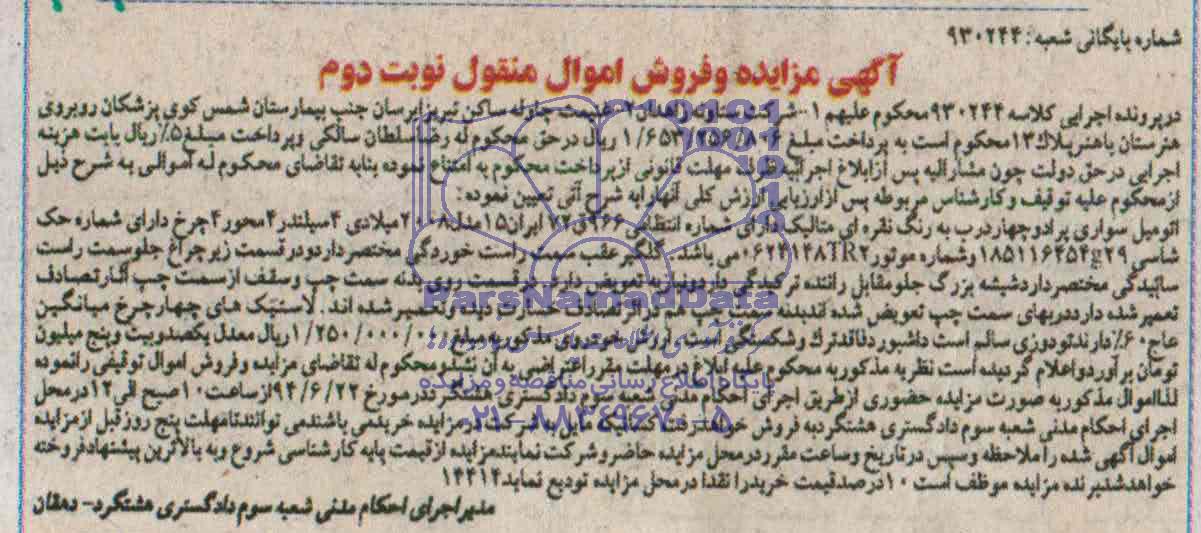 شماره بایگانی شعبه: ۹۳۰۲۴۴
آگهی مزایده وفروش اموال منقول نوبت دوم
درپرونده اجرایی کلاسه ۹۳۰۲۴۴ محکوم علیهم ۱- شرکت ساکن تبریز ابرسان جنب بیمارستان شمس کوی پزشکان روبروی
هنرستان پلاک ۱۳ محکوم است به پرداخت مبلغ ۱/۶۵۳/۲۵۶/۸۰۶ ریال درحق محکوم له رضا سلطان سالکی وپرداخت مبلغ ۵٪ ریال بابت هزینه
اجرایی درحق دولت چون مشارالیه پس ازابلاغ اجرائیه ظرف مهلت قانونی ازپرداخت محکوم به امتناع نموده بنابه تقاضای محکوم له اموالی به شرح ذیل
ازمحکوم علیه توقیف وکارشناس مربوطه پس ازارزیابی ارزش کلی آنهارابه شرح آتی تعیین نموده:
اتومبیل سواری پرادوچهاردرب به رنگ نقره ای متالیک دارای شماره انتظامی ایران۱۵مدل۲۰۰۸میلادی ۴سیلندر۴محور۴چرخ دارای شماره حک
شاسی وشماره موتور می باشد. گلگیرعقب سمت راست خوردگی مختصرداردودرقسمت زیرچراغ جلوسمت راست
سائیدگی مختصرداردشیشه بزرگ جلومقابل راننده ترکیدگی داردونیازبه تعویض دارد درقسمت روی بدنه سمت چپ وسقف ازسمت چپ آثارتصادف
تعمیر شده دارددربهای سمت چپ تعویض شده اندبدنه سمت چپ هم دراثرتصادف خسارت دیده وتعمیرشده اند. لاستیک های چهارچرخ میانگین
عاج۶۰٪دارندتودوزی سالم است داشبوردفاقدترک وشکستگی است. ارزش خودروی مذکوربه مبلغ ۱/۲۵۰/۰۰۰/۰۰۰ریال معدل یکصدوبیست وپنج میلیون
تومان برآوردواعلام گردیده است نظربه مذکوربه محکوم علیه ابلاغ درمهلت مقرراعتراضی به آن نشدومحکوم له تقاضای مزایده وفروش اموال توقیفی رانموده
لذااموال مذکوربه صورت مزایده حضوری ازطریق اجرای احکام مدنی شعبه سوم دادگستری هشتگرددرمورخ ۹۴/۶/۲۲ازساعت۱۰صبح الی۱۲درمحل
اجرای احکام مدنی شعبه سوم دادگستری هشتگردبه فروش خواهدرسید مایل به شرکت درمزایده خریدمی باشندمی توانندتامهلت پنج روزقبل ازمزایده
اموال آگهی شده راملاحظه وسپس درتاریخ وساعت مقرردرمحل مزایده حاضروشرکت نمایندمزایده ازقیمت پایه کارشناسی شروع وبه بالاترین پیشنهادفروخته
خواهدشدبرنده مزایده موظف است ۱۰درصدقیمت خریدرانقدا درمحل مزایده تودیع نماید۱۴۴۱۴
مدیراجرای احکام مدنی شعبه سوم دادگستری هشتگرد- دهقان
ParsNamadData
پایگاه اطلاع رسانی مناقصه و مزایده
۰۲۱-۸۸۳۴۹۶۷۰-۵